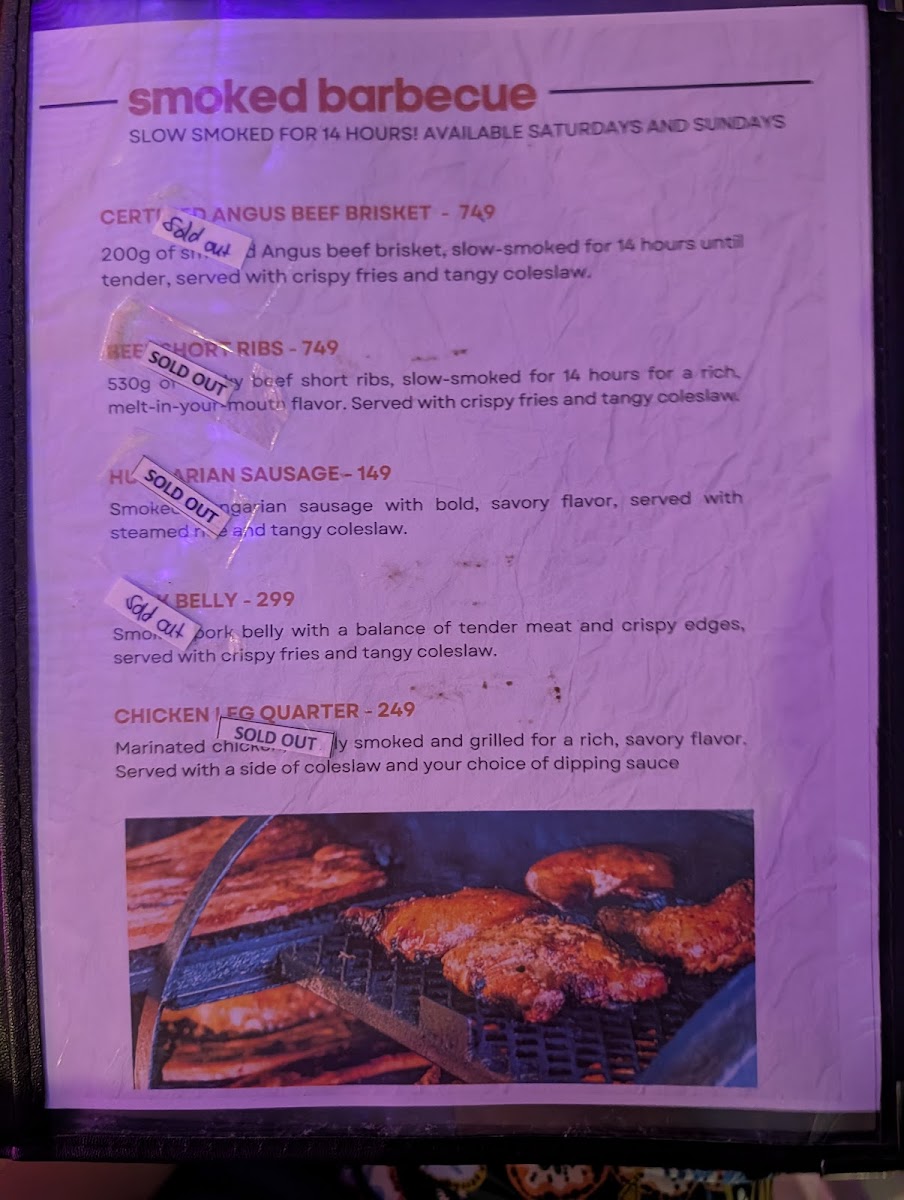 smoked barbecue
SLOW SMOKED FOR 14 HOURS! AVAILABLE SATURDAYS AND SUNDAYS
ANGUS BEEF BRISKET - 749
Sold out
200g of Angus beef brisket, slow-smoked for 14 hours until
tender, served with crispy fries and tangy coleslaw.
SHORT RIBS - 749
SOLD OUT
530g of beef short ribs, slow-smoked for 14 hours for a rich,
melt-in-your-mouth flavor. Served with crispy fries and tangy coleslaw.
SAUSAGE - 149
SOLD OUT
Smoked sausage with bold, savory flavor, served with
steamed and tangy coleslaw.
BELLY - 299
Sold out
pork belly with a balance of tender meat and crispy edges,
served with crispy fries and tangy coleslaw.
CHICKEN LEG QUARTER - 249
SOLD OUT
Marinated smoked and grilled for a rich, savory flavor.
Served with a side of coleslaw and your choice of dipping sauce